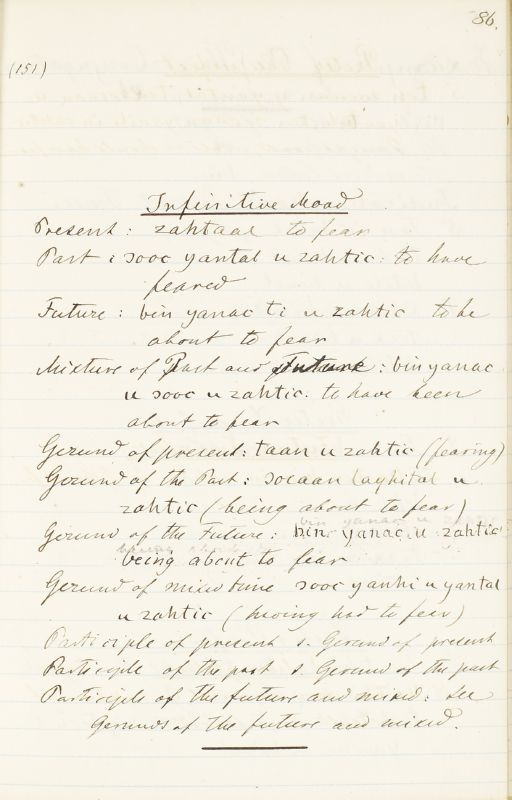 86.
(151)
Infinitive Mood
Present : zahtaal to fear
Past : sooc yantal u zahtic : to have
feared
Future : bin yanac ti u zahtic to be
about to fear
Mixture of Past and Future : bin yanac
u sooc u zahtic : to have been
about to fear
Gerund of present : taan u zahtic (fearing)
Gerund of the Past : socaan layhital u
zahtic (being about to fear)
Gerund of the Future : bin yanac u zahtic
being about to fear
Gerund of mixed time sooc yanhi u yantal
u zahtic (having had to fear)
Participle of present s. Gerund of present
Participle of the past s. Gerund of the past
Participle of the future and mixed : see
Gerunds of the future and mixed.